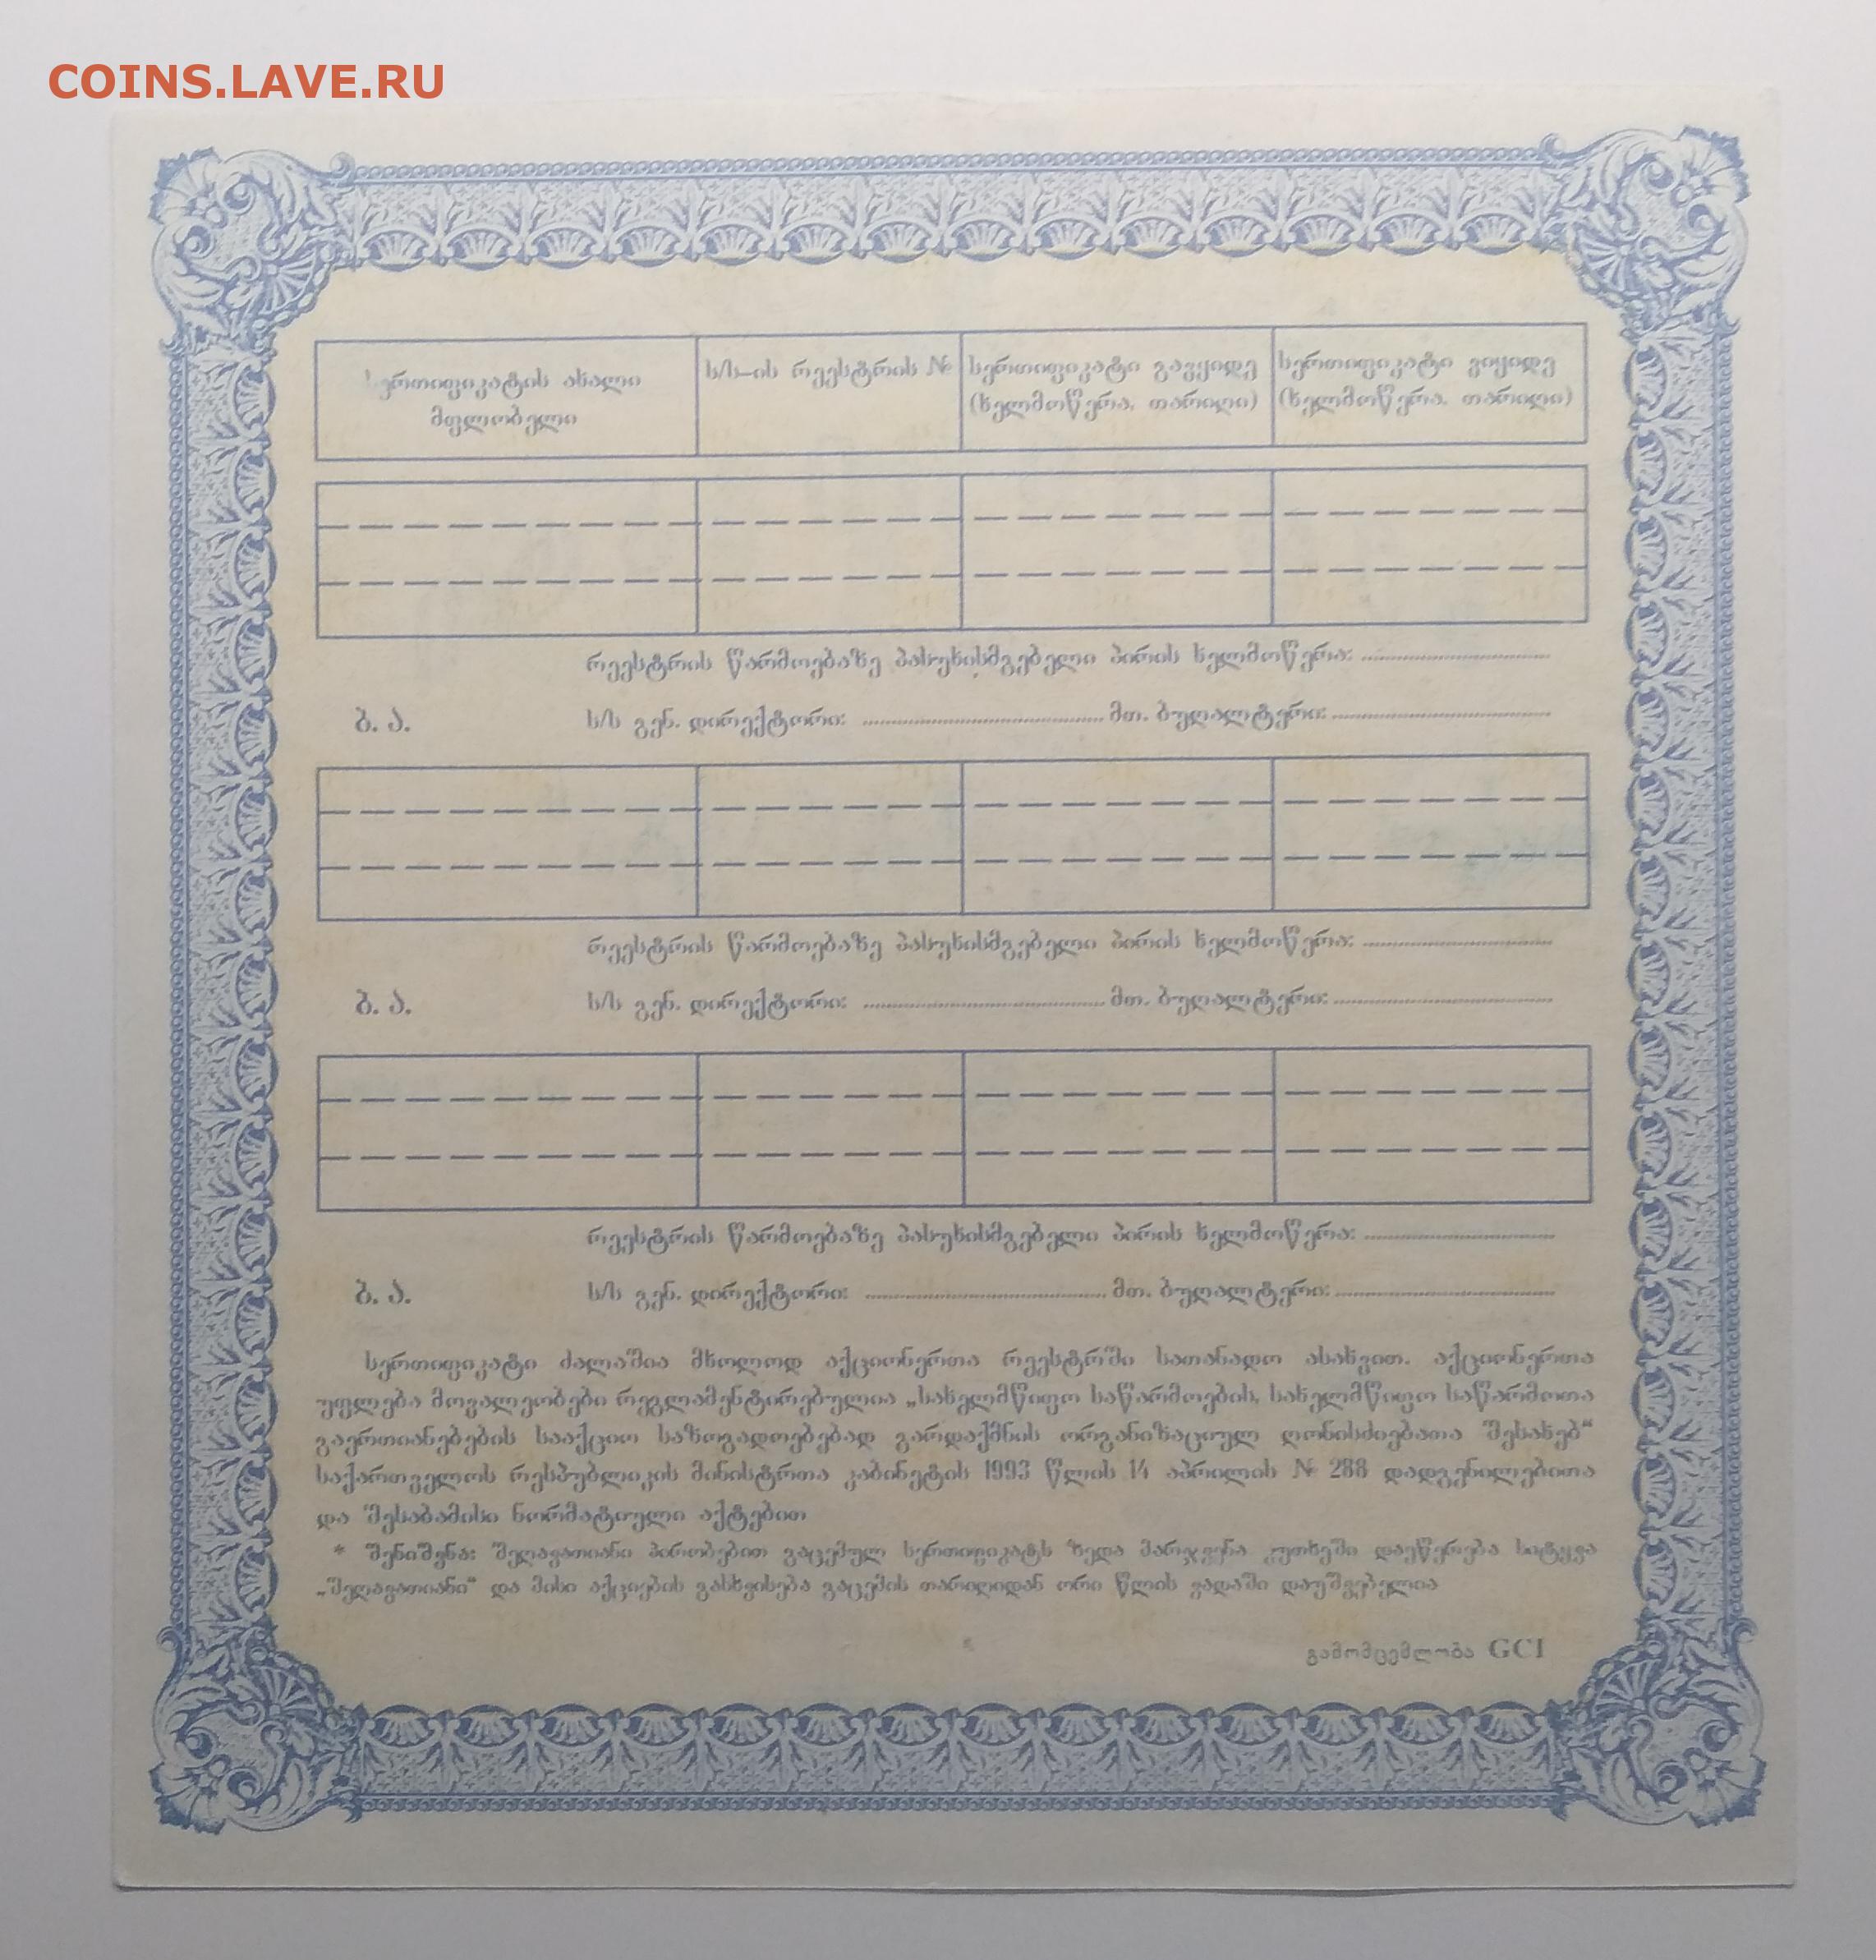 COINS.LAVE.RU
სერთიფიკატის ახალი
მფლობელი
ს/ს–ის რეესტრის №
სერთიფიკატი გავყიდე
(ხელმოწერა, თარიღი)
სერთიფიკატი ვიყიდე
(ხელმოწერა, თარიღი)
რეესტრის წარმოებაზე პასუხისმგებელი პირის ხელმოწერა:
ბ. ა. ს/ს გენ. დირექტორი: მთ. ბუღალტერი:
რეესტრის წარმოებაზე პასუხისმგებელი პირის ხელმოწერა:
ბ. ა. ს/ს გენ. დირექტორი: მთ. ბუღალტერი:
რეესტრის წარმოებაზე პასუხისმგებელი პირის ხელმოწერა:
ბ. ა. ს/ს გენ. დირექტორი: მთ. ბუღალტერი:
სერთიფიკატი ძალაშია მხოლოდ აქციონერთა რეესტრში სათანადო ასახვით. აქციონერთა
უფლება მოვალეობები რეგლამენტირებულია „სახელმწიფო საწარმოების, სახელმწიფო საწარმოთა
გაერთიანებების სააქციო საზოგადოებებად გარდაქმნის ორგანიზაციულ ღონისძიებათა შესახებ“
საქართველოს რესპუბლიკის მინისტრთა კაბინეტის 1993 წლის 14 აპრილის № 288 დადგენილებითა
და შესაბამისი ნორმატიული აქტებით
* შენიშვნა: შეღავათიანი პირობებით გაცემულ სერთიფიკატს ზედა მარჯვენა კუთხეში დაეწერება სიტყვა
„შეღავათიანი“ და მისი აქციების გასხვისება გაცემის თარიღიდან ორი წლის ვადაში დაუშვებელია
გამომცემლობა GCI